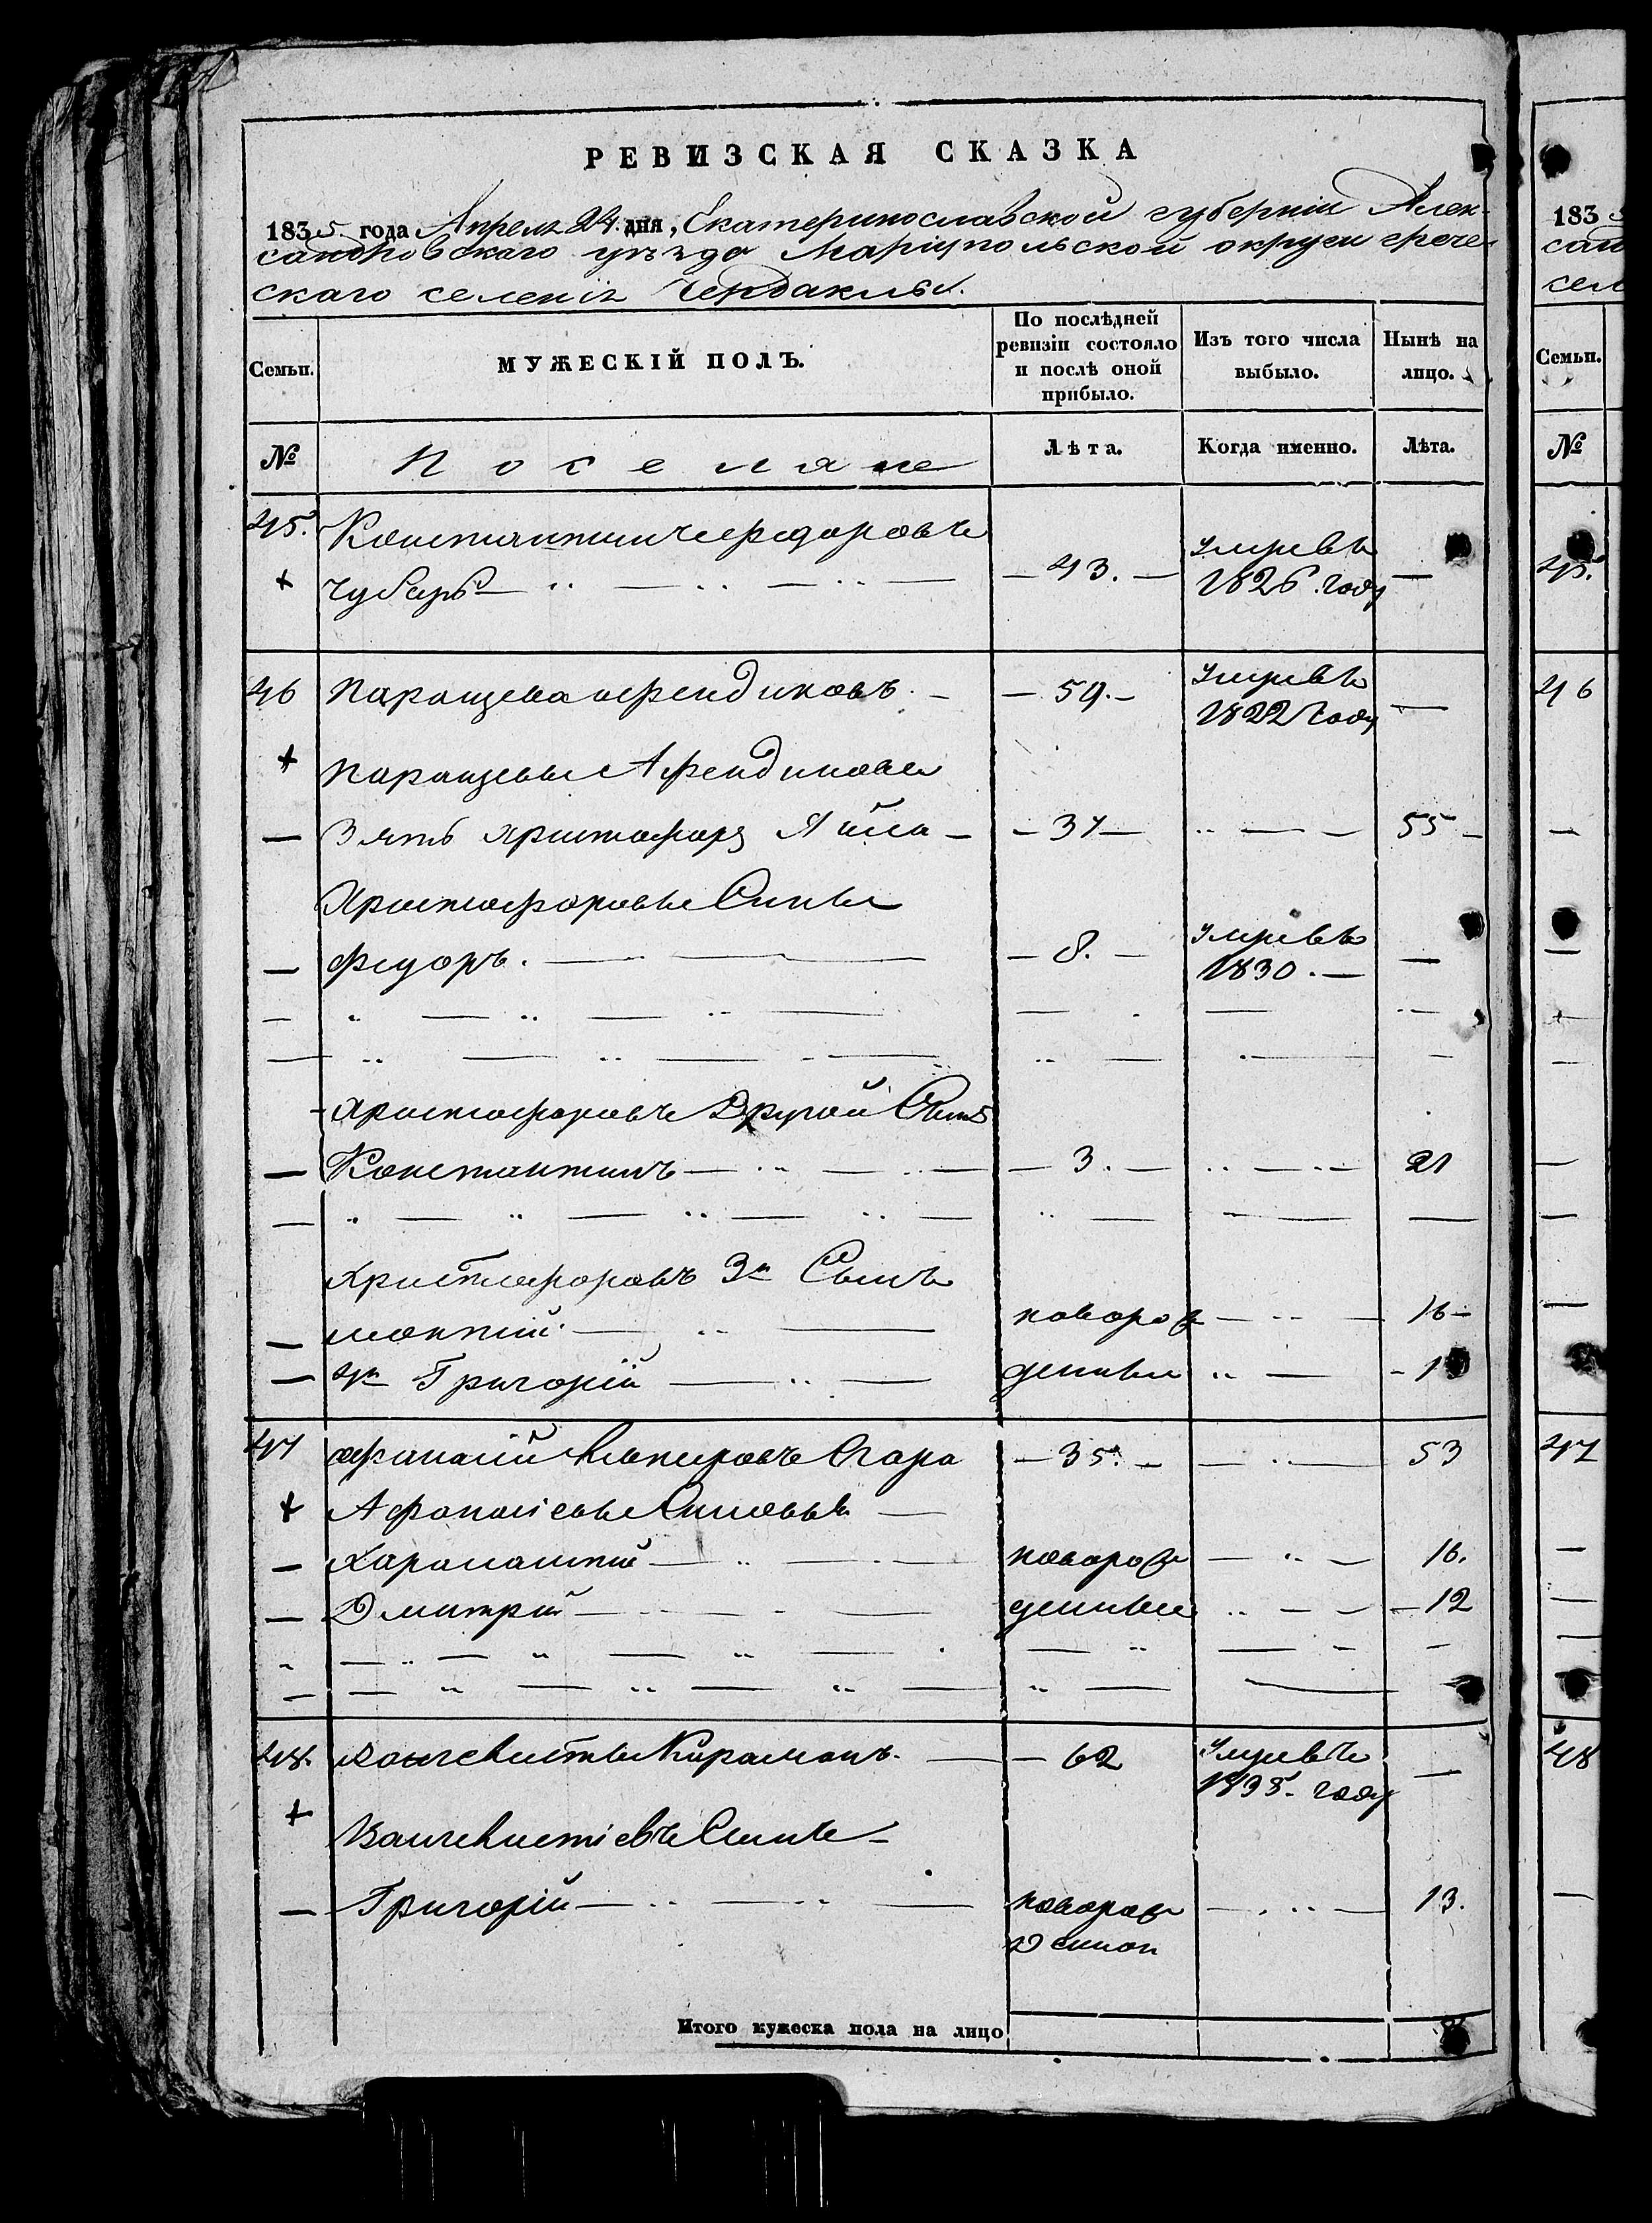 РЕВИЗСКАЯ СКАЗКА
1835 года Апреля 24 дня, Екатеринославской губерніи Алек-
сандровскаго уѣзда Маріупольской округи грече-
скаго селенія Чердаклы.
Семьи. МУЖЕСКІЙ ПОЛЪ. По послѣдней ревизіи состояло и послѣ оной прибыло. Изъ того числа выбыло. Нынѣ на лицо.
№ Поселяне Лѣта. Когда именно. Лѣта.
45. Константинъ Федоровъ
Чубарь 43. умре въ 1826 году
46 Паращева Афендиковъ 59. умре въ 1822 году
Паращевы Афендиковы
Зять Христофоръ 37 55
Христофоровы Сины
Федоръ. 8. умре въ 1830.
Христофоровъ Другой Сынъ
Константинъ 3. 21
Христофоровъ 3й Сынъ
новорож 16
4й Григорій денные
47 Афанасій Сгара 35. 53
Афанасіевы Синовья
Харалампій новорож 16.
Дмитрій денные 12
48. Караманъ. 62 умре въ году
Сынъ
Григорій новорож 13.
денной
Итого мужеска пола на лицо
183
Семьи.
№
45.
46
47
48